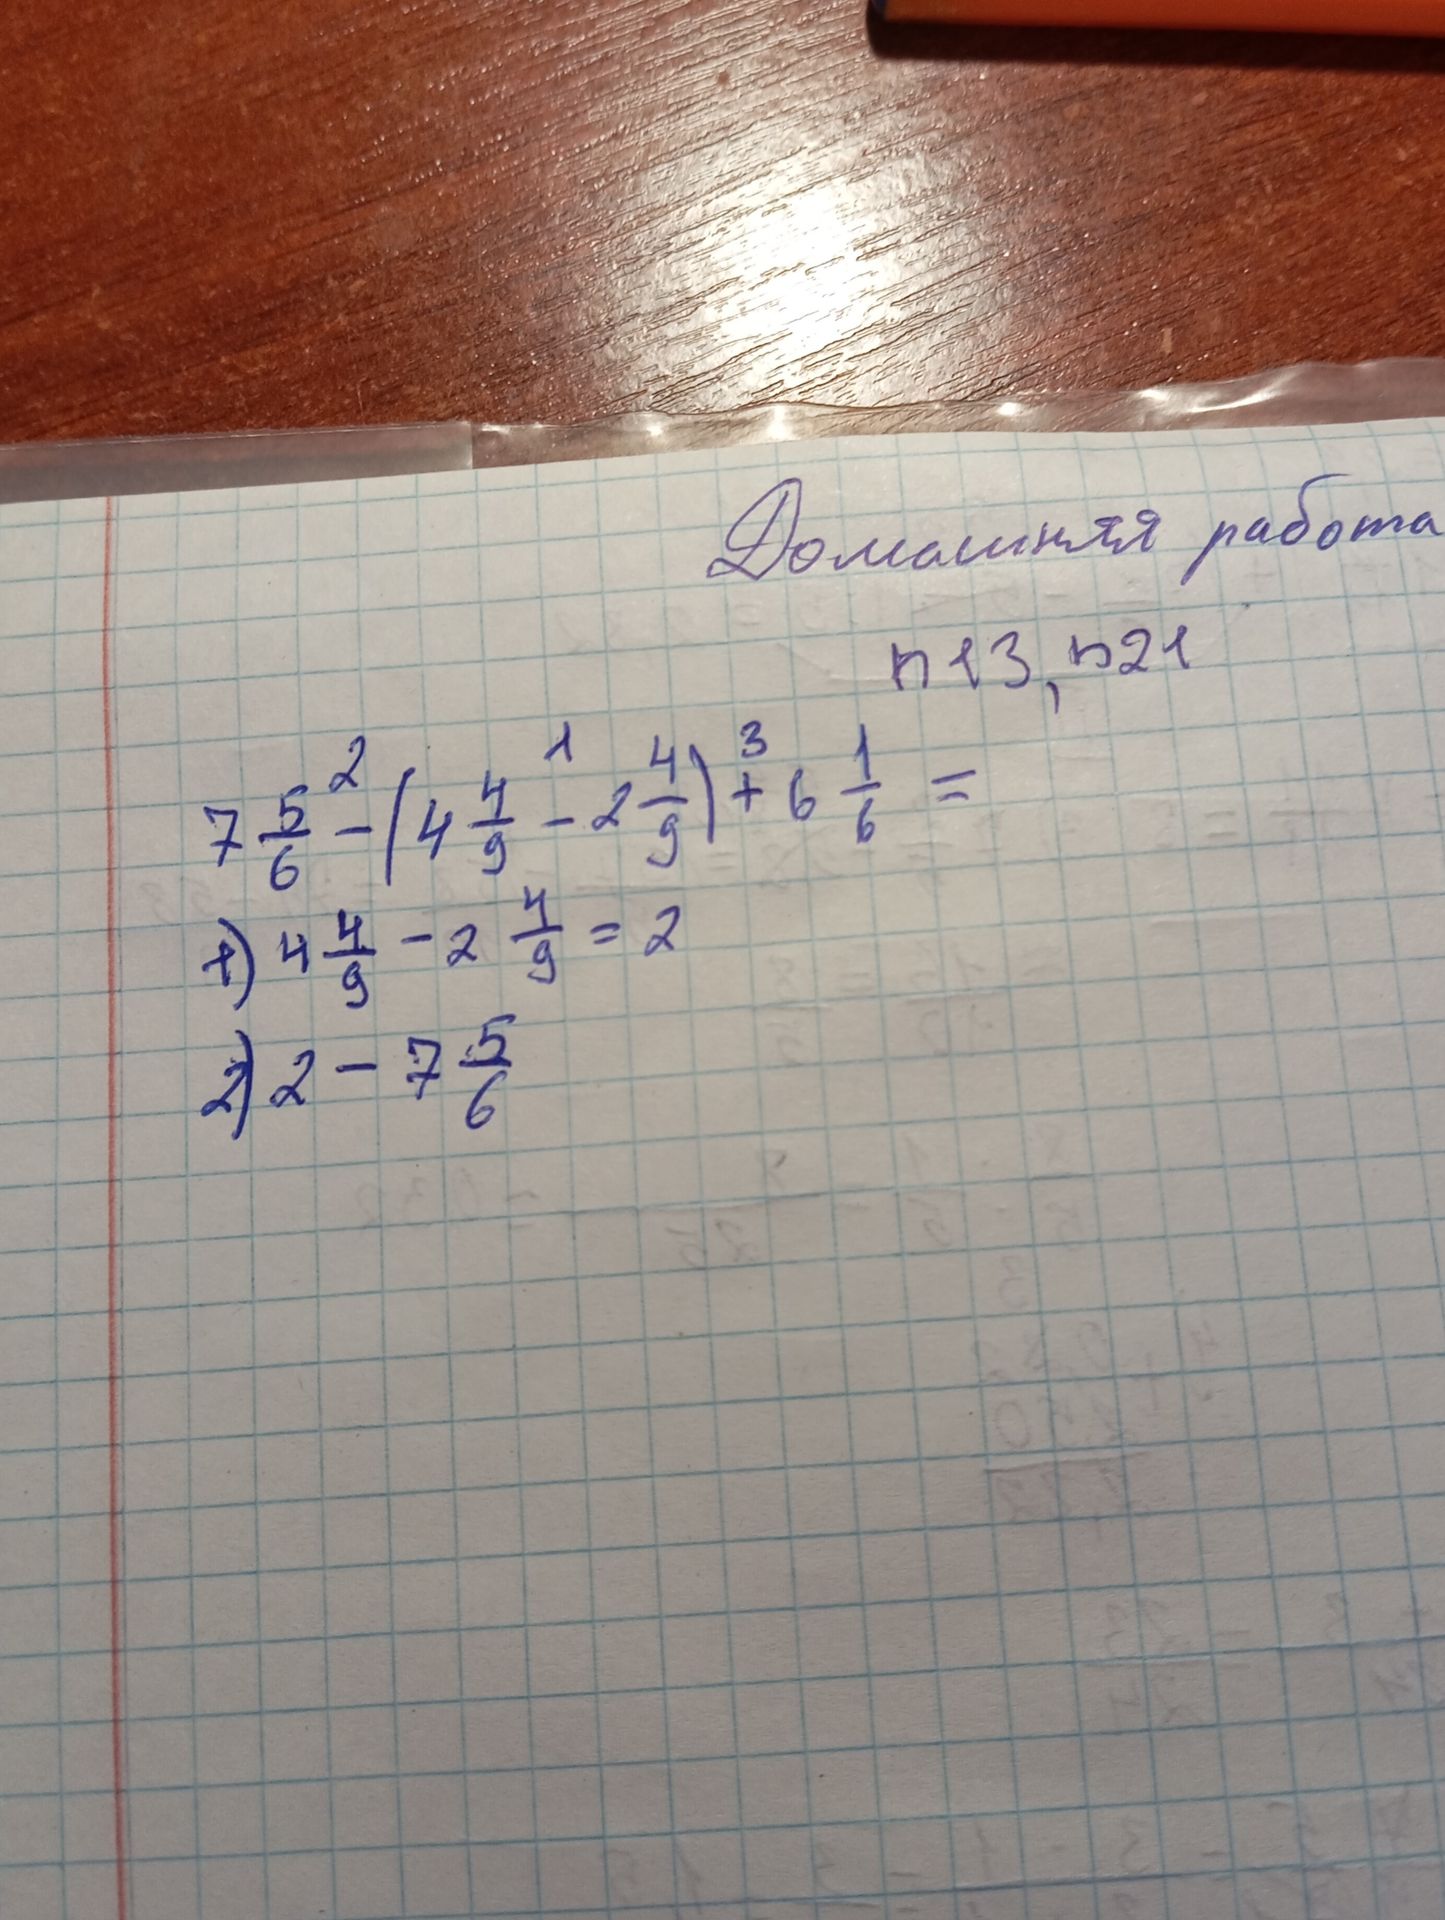 Домашняя работа
n13, n21
7 5/6 - (4 4/9 - 2 4/9) + 6 1/6 =
2 1 3
1) 4 4/9 - 2 4/9 = 2
2) 2 - 7 5/6